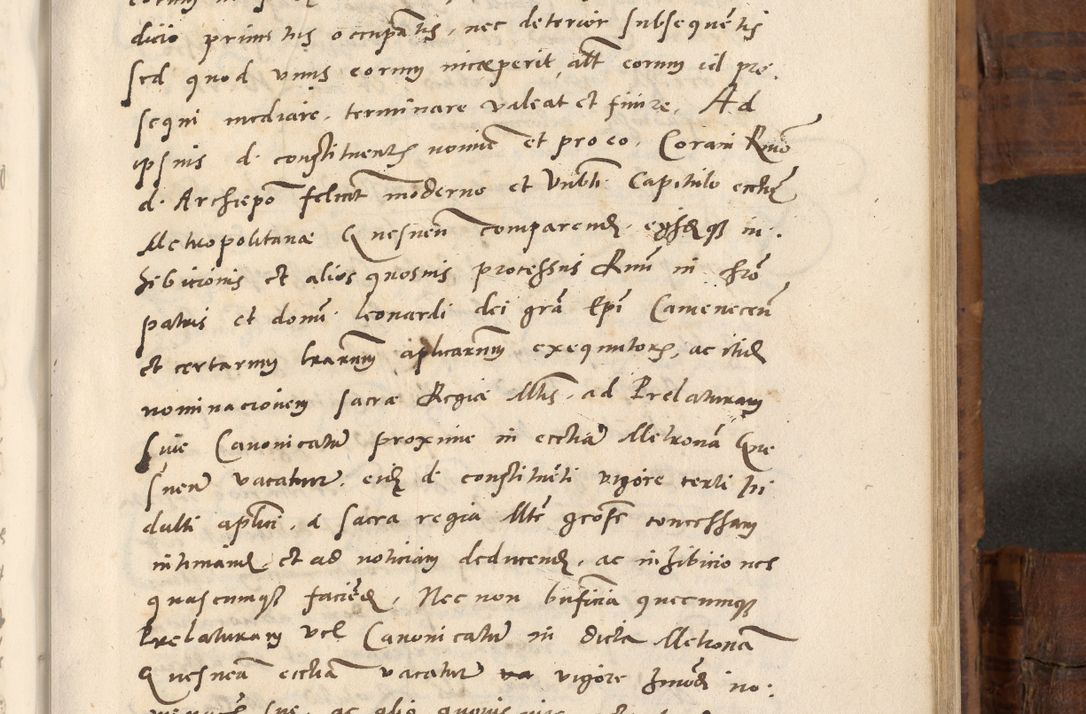 dicio primitus occupatis, nec deterior subsequentis
sed quod unus eorum inceperit, alt eorum id pro
sequi mediare, terminare valeat et finire. Ad
ipsius d. constituentis nomine et pro eo. Coram Rmo
d. Archiepo moderno et Vnbli Capitulo ecclie
Metropolitanæ Gnesnen comparend.
hibitionis et alios quosuis processus Rmi in chro
patris et domi Leonardi dei gra Epi Camenecen
et certarum lrarum aplicarum exequutoris, ac
nominacionem sacræ Regiæ Mtis, ad Prelaturam
siue Canonicatum proxime in ecclia Metropna Gne
snen vacatur. eidem d. constituenti vigore
dulti aplici, a sacra regia Mte concessam
intimand. et ad noticiam deducend, ac inhibiciones
quascumque faciend, Nec non bnficia quecumque
Prelaturam vel Canonicatum in dicta Metropona
Gnesnen ecclia vacatur vigore no: